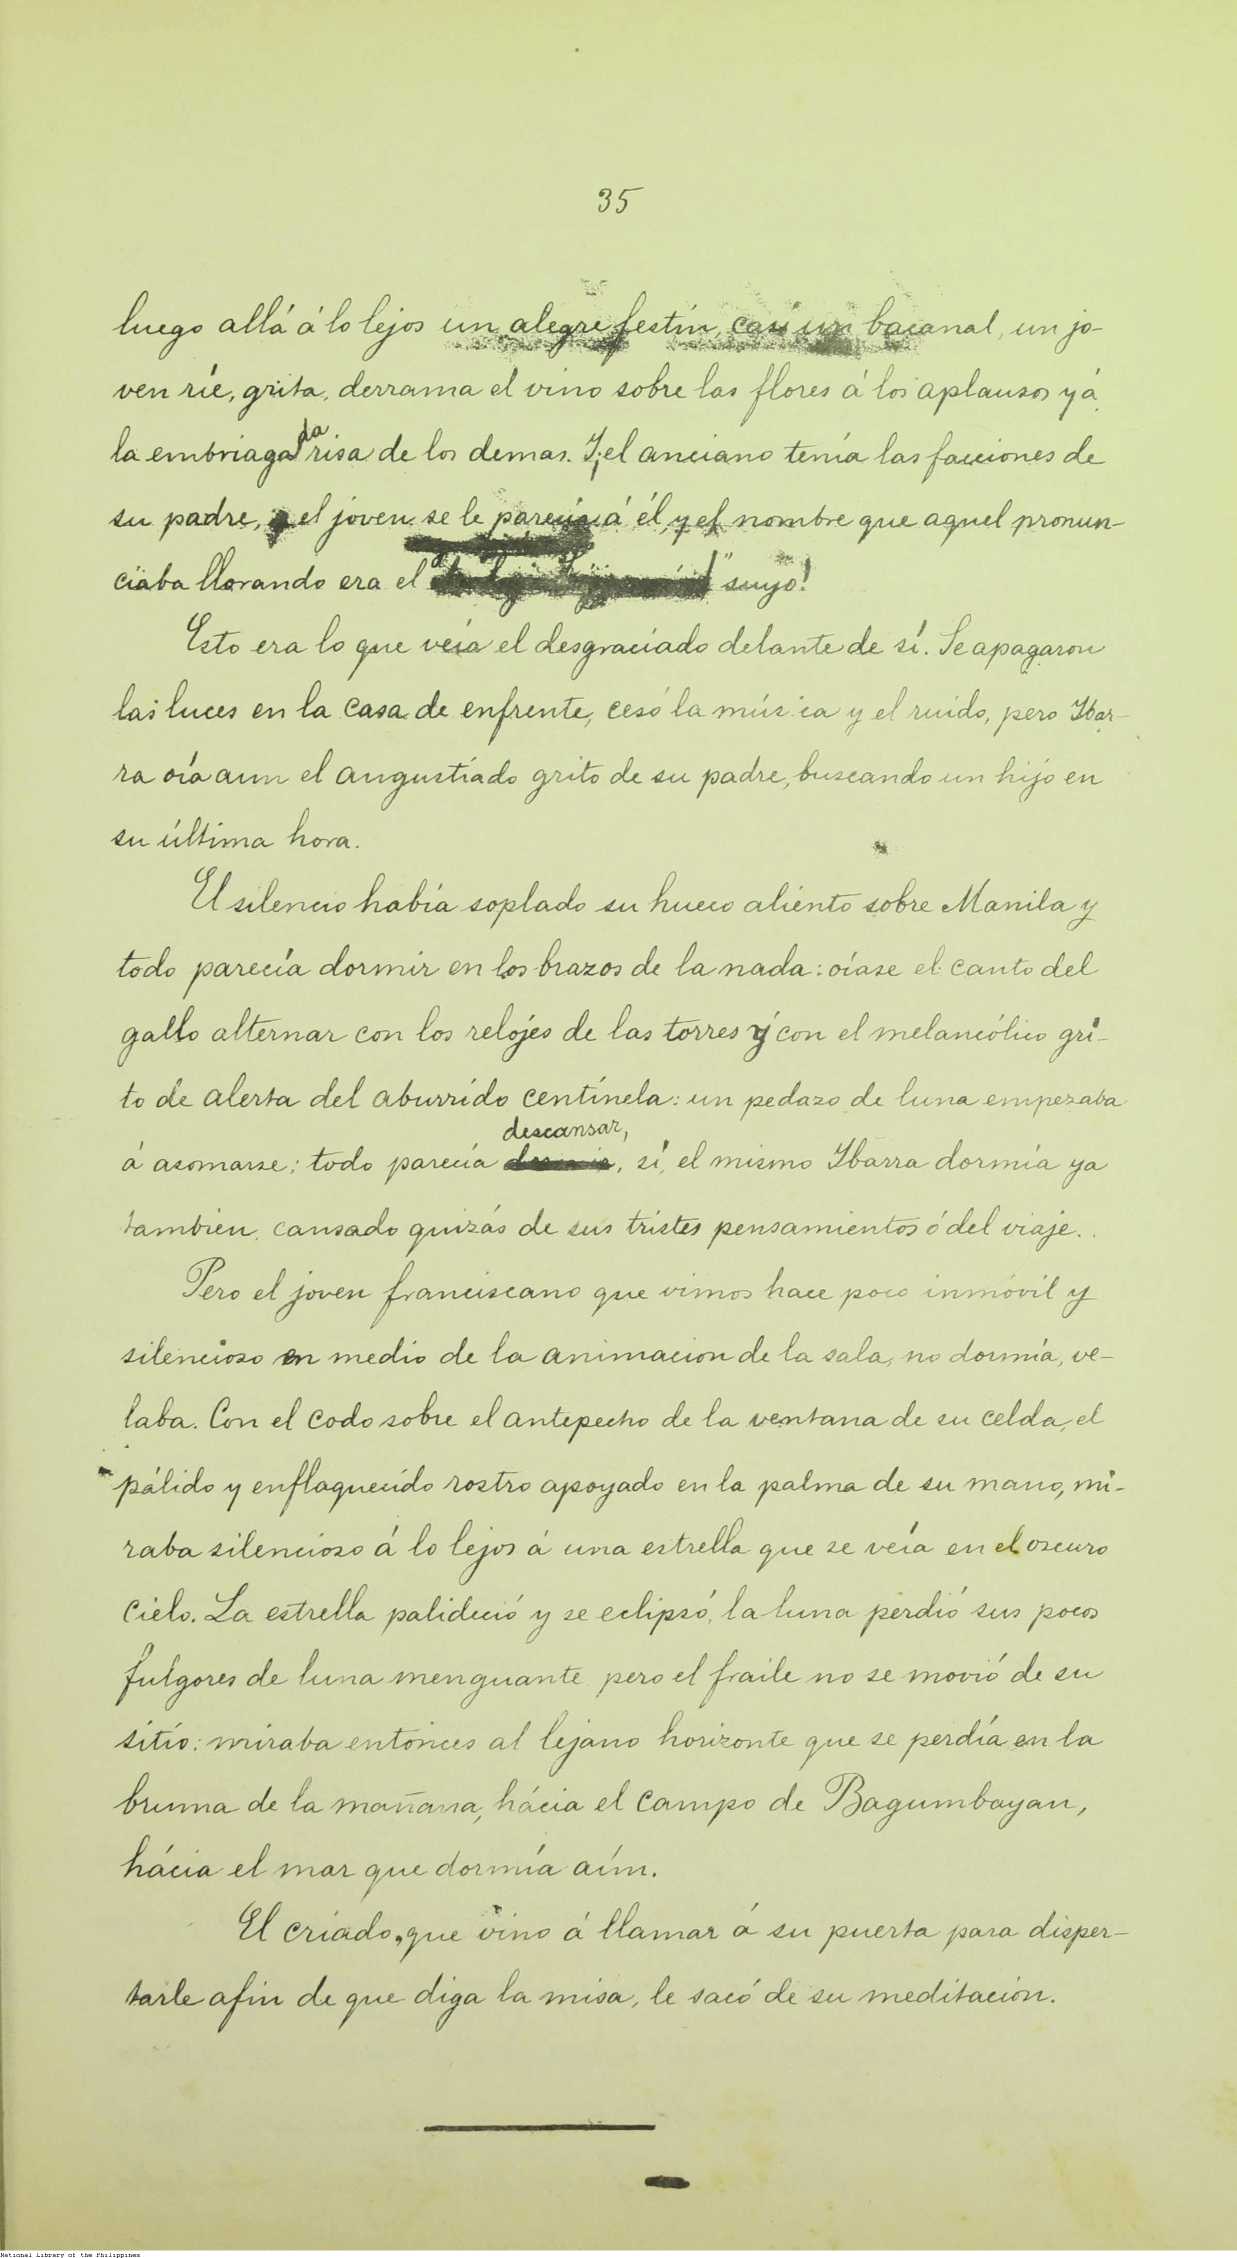 35
luego allá á lo lejos un alegre festin, casi un bacanal, un jo-
ven ríe, grita, derrama el vino sobre las flores á los aplausos y á
la embriagada risa de los demas. Y ¡el anciano tenía las facciones de
su padre, el joven se le parecía á él, y el nombre que aquel pronun-
ciaba llorando era el suyo!
Esto era lo que veía el desgraciado delante de sí. Se apagaron
las luces en la casa de enfrente, cesó la música y el ruido, pero Ibar-
ra oía aun el angustiado grito de su padre, buscando un hijo en
su última hora.
El silencio había soplado su hueco aliento sobre Manila y
todo parecía dormir en los brazos de la nada: oíase el canto del
gallo alternar con los relojes de las torres y con el melancólico gri-
to de alerta del aburrido centinela: un pedazo de luna empezaba
á asomarse; todo parecía descansar, sí, el mismo Ibarra dormía ya
tambien, cansado quizás de sus tristes pensamientos ó del viaje..
Pero el joven franciscano que vimos hace poco inmóvil y
silencioso en medio de la animacion de la sala, no dormía, ve-
laba. Con el codo sobre el antepecho de la ventana de su celda, el
pálido y enflaquecido rostro apoyado en la palma de su mano, mi-
raba silencioso á lo lejos á una estrella que se veía en el oscuro
cielo. La estrella palideció y se eclipsó, la luna perdió sus pocos
fulgores de luna menguante pero el fraile no se movió de su
sitio: miraba entonces al lejano horizonte que se perdía en la
bruma de la mañana, hácia el campo de Bagumbayan,
hácia el mar que dormía aún.
El criado, que vino á llamar á su puerta para disper-
tarle afin de que diga la misa, le sacó de su meditación.
National Library of the Philippines